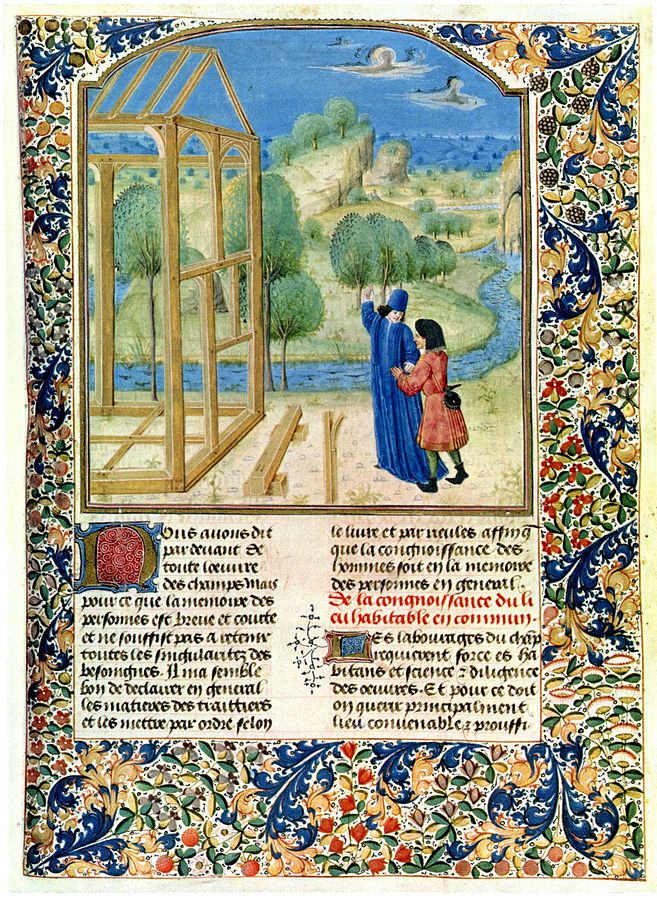 Nous avons dit
par devant de
toute loeuvre
des champs Mais
pour ce que la memoire des
personnes est breve et courte
et ne souffist pas a retenir
toutes les singularitez des
besoingnes. Il ma semble
bon de declairer en general
les matieres des traittiers
et les mettre par ordre selon
le livre et par rieules affinq
que la congnoissance des
hommes soit en la memoire
des personnes en general.
De la congnoissance du li
eu habitable en commun.
Les labourages du chãp
requierent force es ha
bitans et science & diligence
des oeuvres. Et pour ce doit
on querir principalment
lieu convenable & prouffi